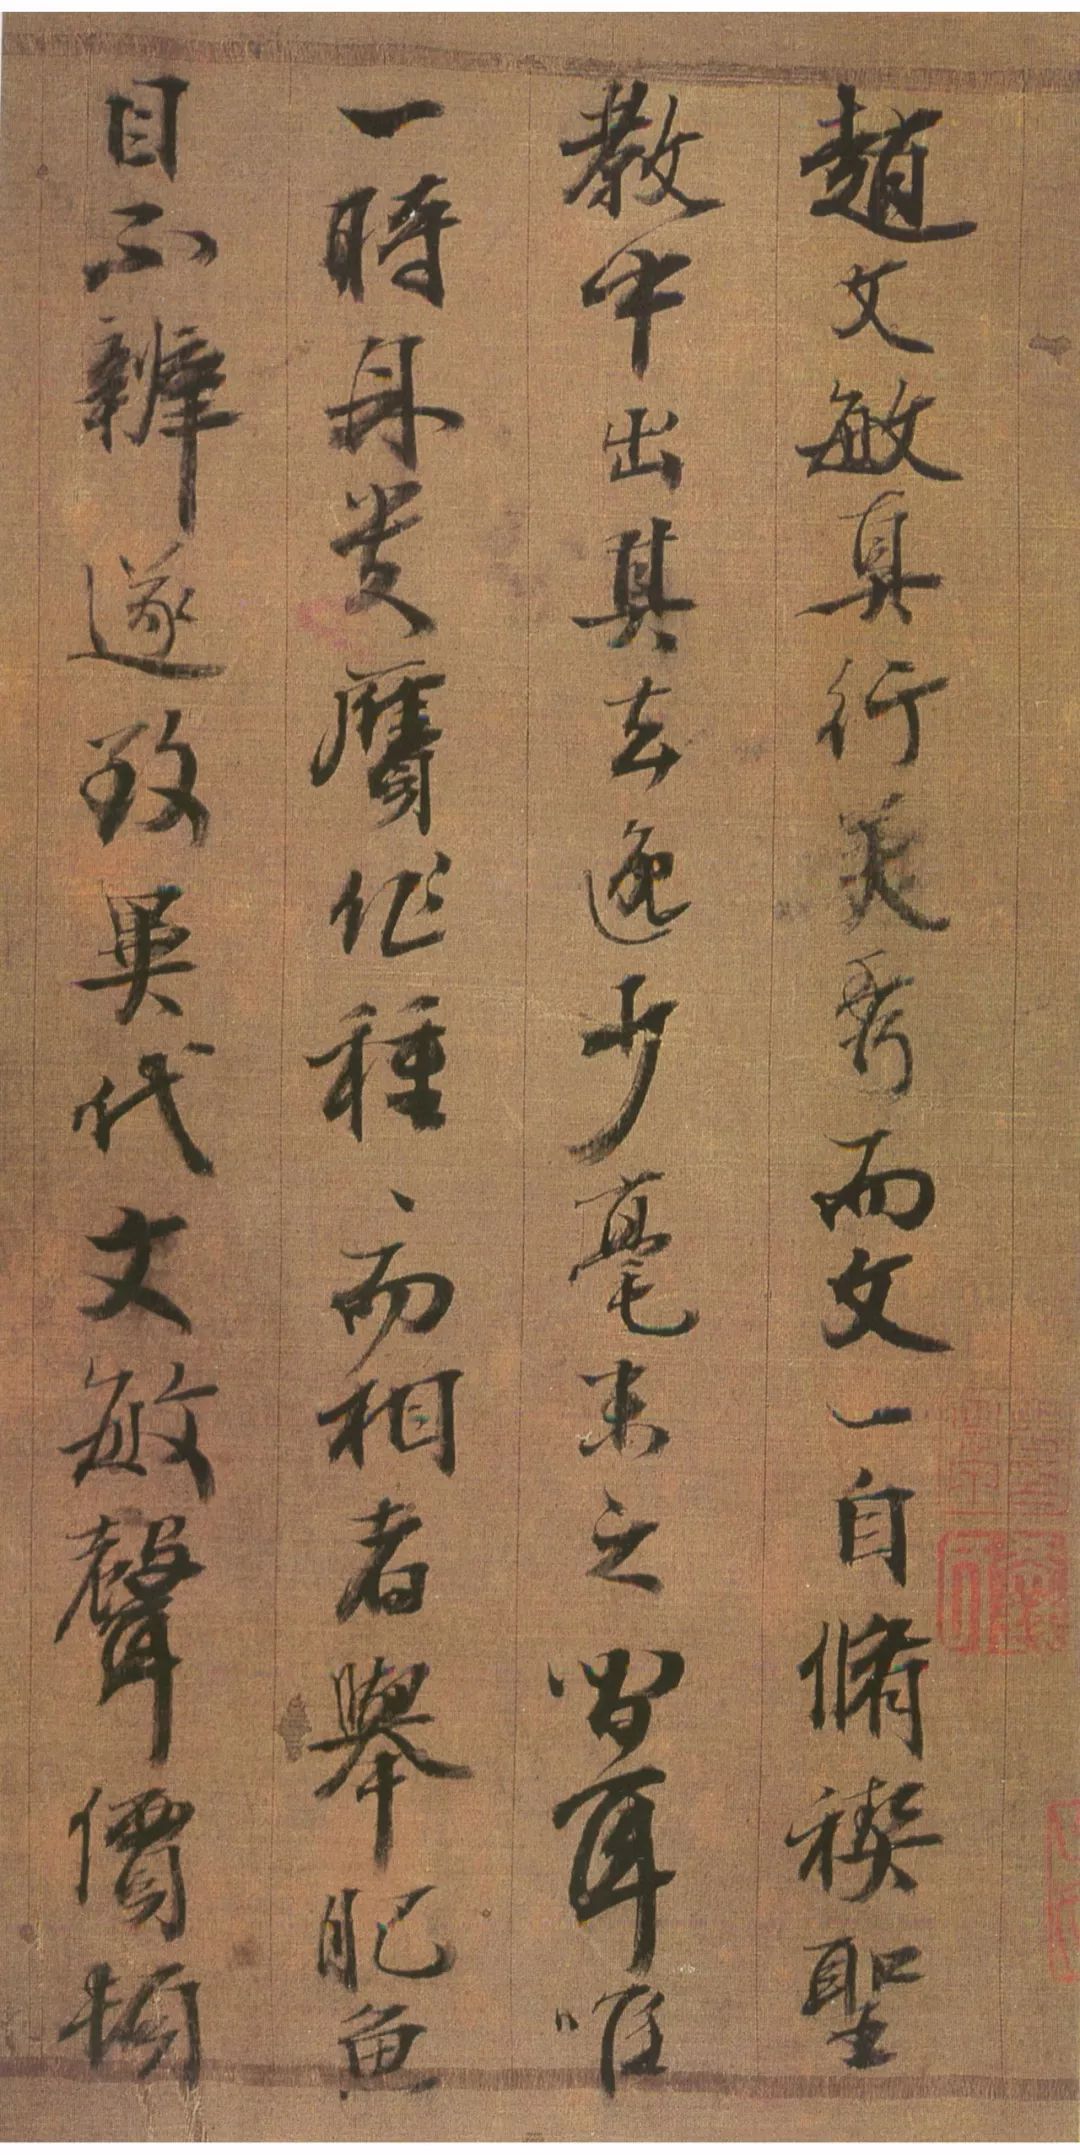 趙文敏真行美秀而文一自脩禊聖
教中出其去逸少毫末之間耳唯
一時身貴贗作種、而相者舉肥魚
目不辨遂致異代文敏聲價頓